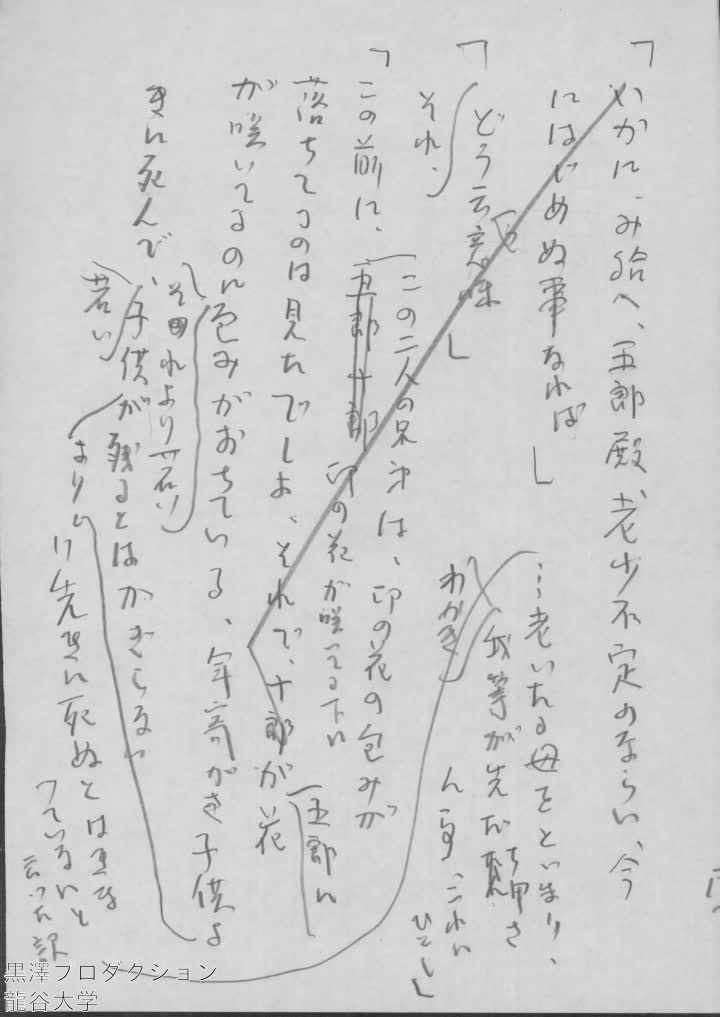 「いかに、み給へ、五郎殿、老少不定のならい、今
にはじめぬ事なれば」
…老いたる母をといまり、
我等が先だち申さ
ん事、これに
ひとし」
わかき
「どう云う意味」
それ、
この二人の兄弟は、卯の花の包みが
「この前に、五郎十郎 卯の花が咲いてる下に
落ちてるのは見たでしよ、それで、十郎が
五郎に
花が咲いてるのに包みがおちている、年寄がさ子供よ
きに死んで、子供が残るとはかぎらない
それより若い
若い
より
り先きに死ぬとはきま
つていないと
云つた訳
黒澤プロダクション
龍谷大学